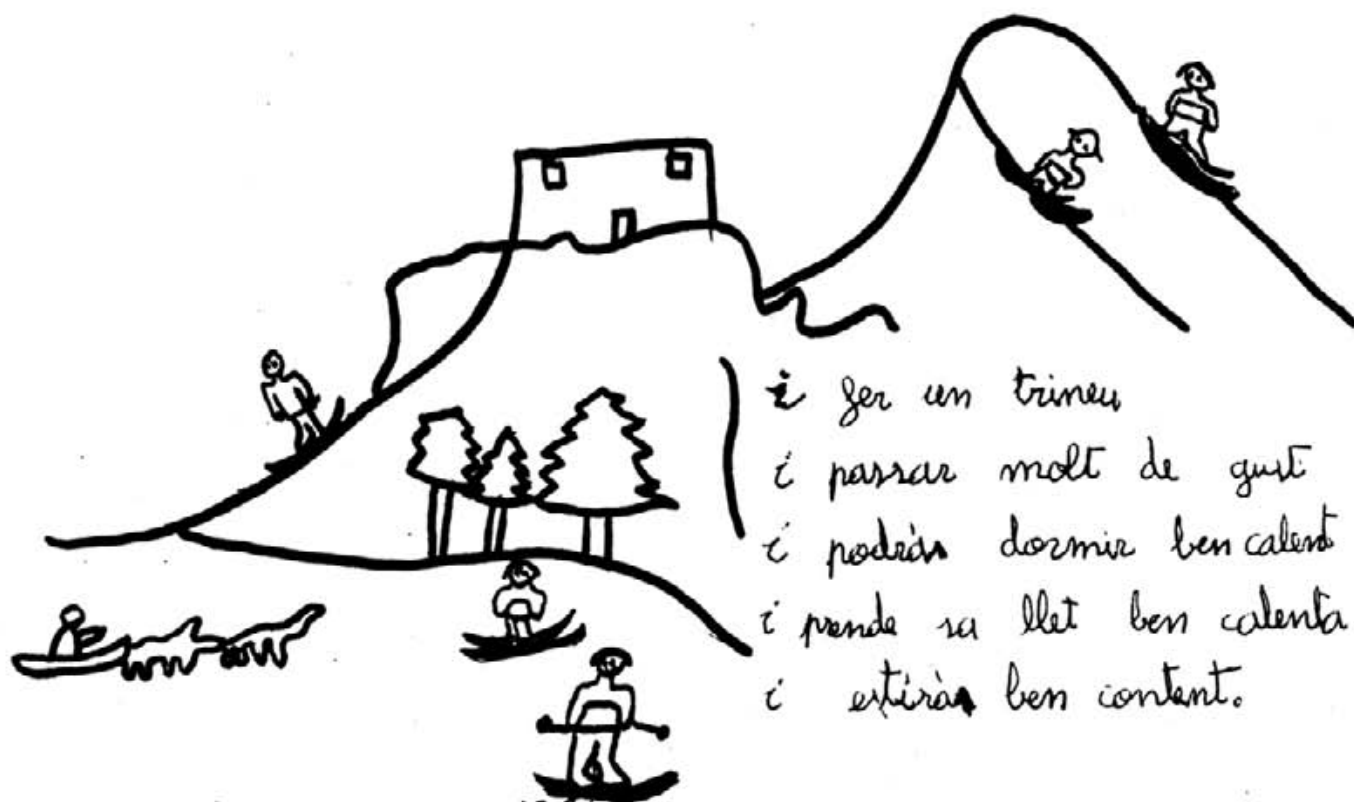 i fer un trineu
i passar molt de gust
i podràs dormir ben calent
i prende sa llet ben calenta
i estiràs ben content.